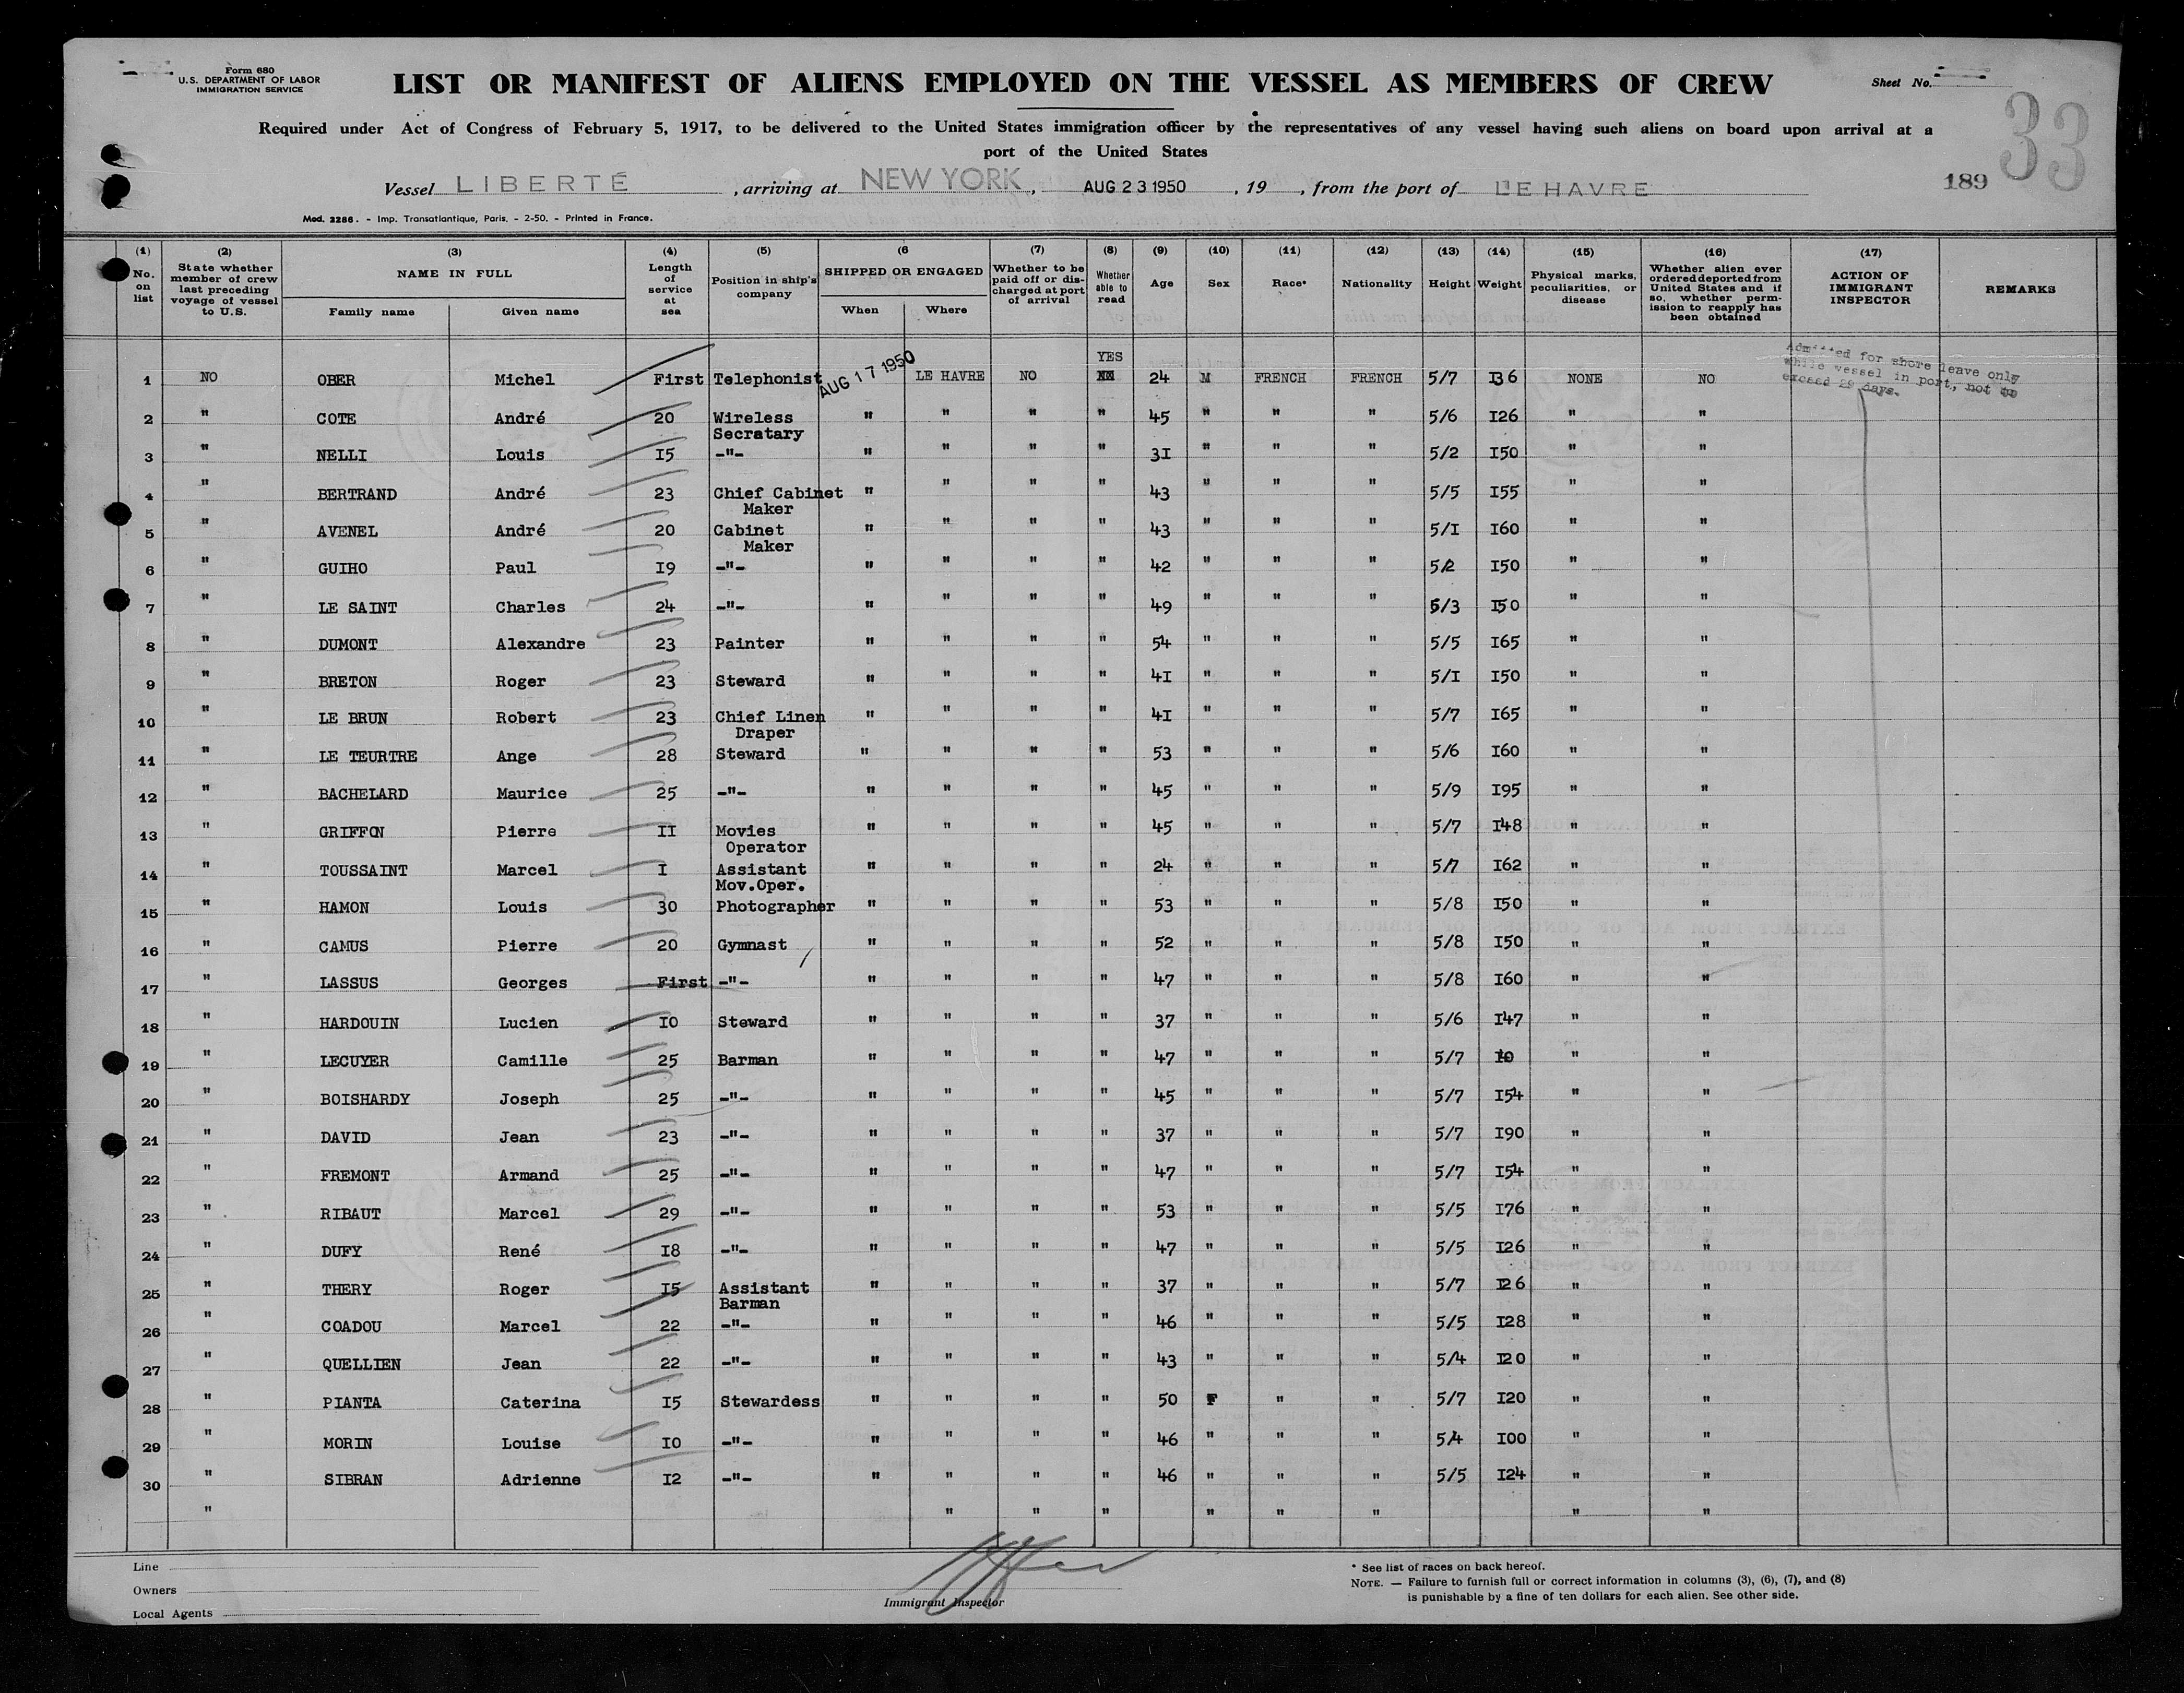 Form 680
U.S. DEPARTMENT OF LABOR
IMMIGRATION SERVICE
LIST OR MANIFEST OF ALIENS EMPLOYED ON THE VESSEL AS MEMBERS OF CREW
Sheet No.
33
Required under Act of Congress of February 5, 1917, to be delivered to the United States immigration officer by the representatives of any vessel having such aliens on board upon arrival at a
port of the United States
Vessel LIBERTÉ , arriving at NEW YORK , AUG 23 1950 , 19 , from the port of LE HAVRE
189
Mod. 2286. - Imp. Transatlantique, Paris. - 2-50. - Printed in France.
(1) (2) (3) (4) (5) (6 (7) (8) (9) (10) (11) (12) (13) (14) (15) (16) (17)
No. on list State whether member of crew last preceding voyage of vessel to U.S. NAME IN FULL Family name Given name Length of service at sea Position in ship's company SHIPPED OR ENGAGED When Where Whether to be paid off or discharged at port of arrival Whether able to read Age Sex Race* Nationality Height Weight Physical marks, peculiarities, or disease Whether alien ever ordered deported from United States and if so, whether permission to reapply has been obtained ACTION OF IMMIGRANT INSPECTOR REMARKS
Admitted for shore leave only
while vessel in port, not to
exceed 29 days.
YES
1 NO OBER Michel First Telephonist AUG 17 1950 LE HAVRE NO 24 M FRENCH FRENCH 5/7 I36 NONE NO
2 " COTE André 20 Wireless " " " " 45 " " " 5/6 I26 " "
Secratary
3 " NELLI Louis I5 -"- " " " " 3I " " " 5/2 I50 " "
4 " BERTRAND André 23 Chief Cabinet " " " " 43 " " " 5/5 I55 " "
Maker
5 " AVENEL André 20 Cabinet " " " " 43 " " " 5/I I60 " "
Maker
6 " GUIHO Paul I9 -"- " " " " 42 " " " 5/2 I50 " "
7 " LE SAINT Charles 24 -"- " " " " 49 " " " 5/3 I50 " "
8 " DUMONT Alexandre 23 Painter " " " " 54 " " " 5/5 I65 " "
9 " BRETON Roger 23 Steward " " " " 4I " " " 5/I I50 " "
10 " LE BRUN Robert 23 Chief Linen " " " " 4I " " " 5/7 I65 " "
Draper
11 " LE TEURTRE Ange 28 Steward " " " " 53 " " " 5/6 I60 " "
12 " BACHELARD Maurice 25 -"- " " " " 45 " " " 5/9 I95 " "
13 " GRIFFON Pierre II Movies " " " " 45 " " " 5/7 I48 " "
Operator
14 " TOUSSAINT Marcel I Assistant " " " " 24 " " " 5/7 I62 " "
Mov.Oper.
15 " HAMON Louis 30 Photographer " " " " 53 " " " 5/8 I50 " "
16 " CAMUS Pierre 20 Gymnast " " " " 52 " " " 5/8 I50 " "
17 " LASSUS Georges First -"- " " " " 47 " " " 5/8 I60 " "
18 " HARDOUIN Lucien I0 Steward " " " " 37 " " " 5/6 I47 " "
19 " LECUYER Camille 25 Barman " " " " 47 " " " 5/7 " "
20 " BOISHARDY Joseph 25 -"- " " " " 45 " " " 5/7 I54 " "
21 " DAVID Jean 23 -"- " " " " 37 " " " 5/7 I90 " "
22 " FREMONT Armand 25 -"- " " " " 47 " " " 5/7 I54 " "
23 " RIBAUT Marcel 29 -"- " " " " 53 " " " 5/5 I76 " "
24 " DUFY René I8 -"- " " " " 47 " " " 5/5 I26 " "
25 " THERY Roger I5 Assistant " " " " 37 " " " 5/7 I26 " "
Barman
26 " COADOU Marcel 22 -"- " " " " 46 " " " 5/5 I28 " "
27 " QUELLIEN Jean 22 -"- " " " " 43 " " " 5/4 I20 " "
28 " PIANTA Caterina I5 Stewardess " " " " 50 F " " 5/7 I20 " "
29 " MORIN Louise I0 -"- " " " " 46 " " " 5/4 I00 " "
30 " SIBRAN Adrienne I2 -"- " " " " 46 " " " 5/5 I24 " "
" " " " " " " " "
Line
Owners
Local Agents
Immigrant Inspector
* See list of races on back hereof.
NOTE. — Failure to furnish full or correct information in columns (3), (6), (7), and (8)
is punishable by a fine of ten dollars for each alien. See other side.